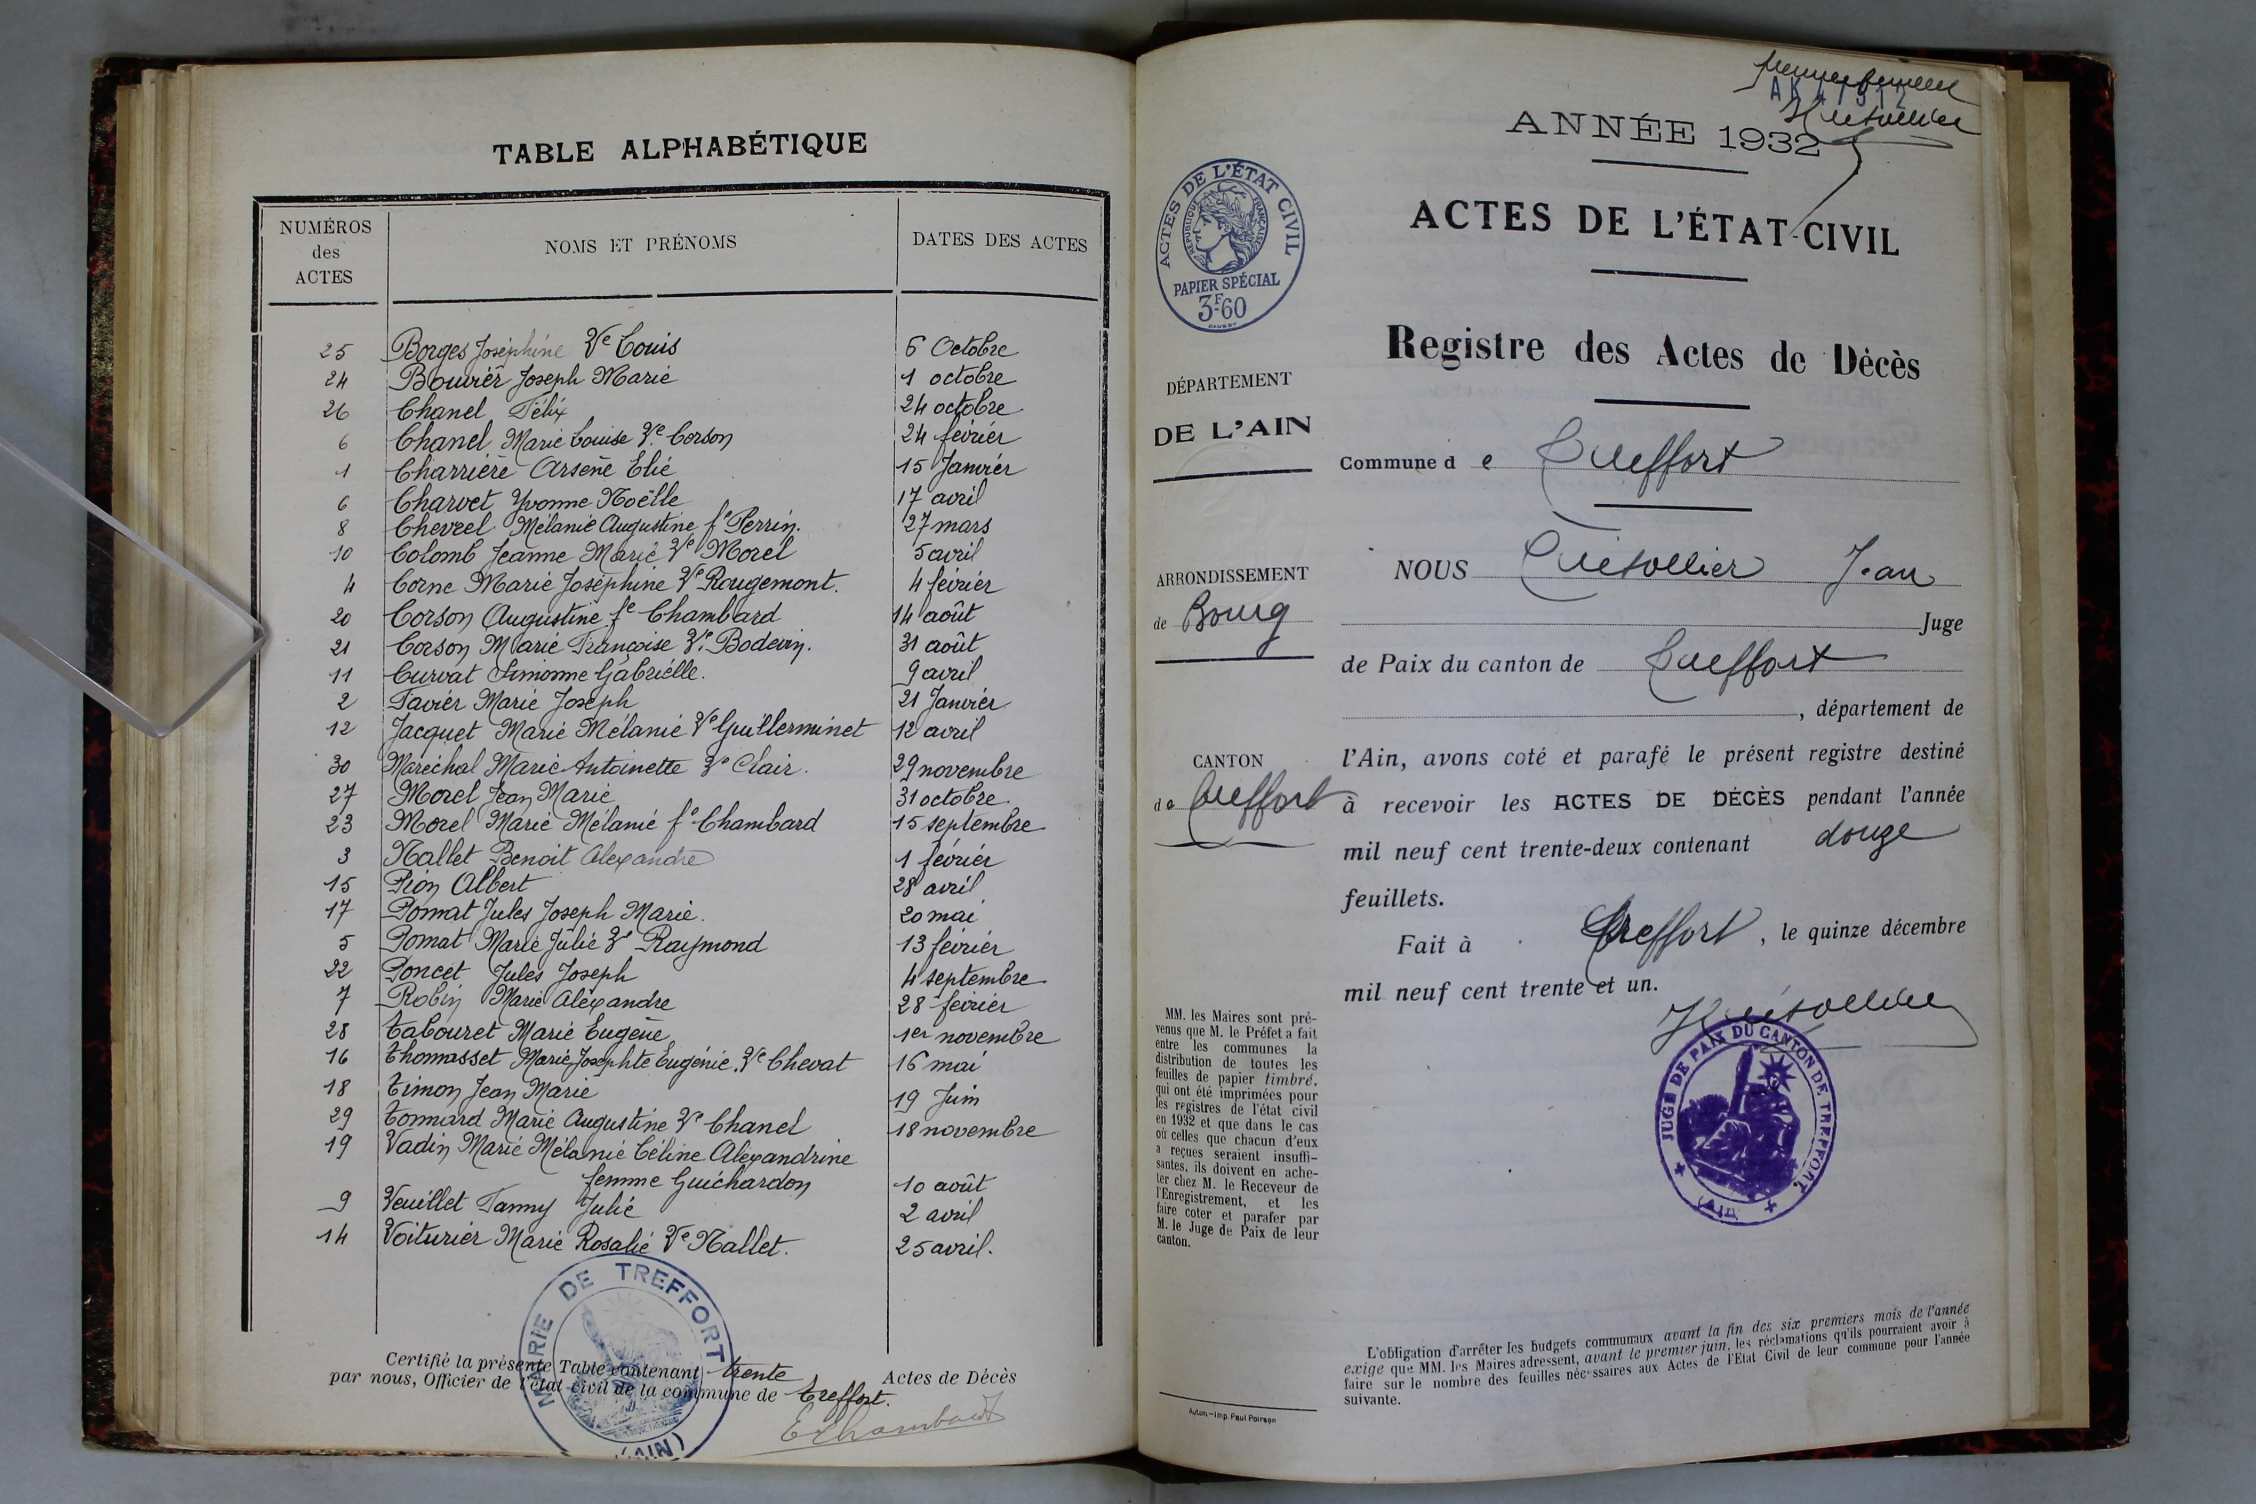 TABLE ALPHABÉTIQUE
NUMÉROS des ACTES NOMS ET PRÉNOMS DATES DES ACTES
25 Borges Joséphine Ve Louis 6 Octobre
24 Bouvier Joseph Marie 1 octobre
26 Chanel Félix 24 octobre
6 Chanel Marie Louise Ve Corson 24 février
1 Charrière Arsène Elie 15 Janvier
6 Charvet Yvonne Noëlle 17 avril
8 Chevrel Mélanie Augustine fe Perrin. 27 mars
10 Colomb Jeanne Marie Ve Morel 5 avril
4 Corne Marie Joséphine Ve Rougemont. 4 février
20 Corson Augustine fe Chambard 14 août
21 Corson Marie Françoise Ve Bodevin. 31 août
11 Curvat Simonne Gabrielle. 9 avril
2 Favier Marie Joseph 21 Janvier
12 Jacquet Marie Mélanie Ve Guillerminet 12 avril
30 Maréchal Marie Antoinette Ve Clair. 29 novembre
27 Morel Jean Marie 31 octobre
23 Morel Marie Mélanie fe Chambard 15 septembre
3 Nallet Benoit Alexandre 1 février
15 Pion Albert 28 avril
17 Pomat Jules Joseph Marie. 20 mai
5 Pomat Marie Julie Ve Raymond 13 février
22 Poncet Jules Joseph 4 septembre
7 Robin Marie Alexandre 28 février
28 Tabouret Marie Eugène 1er novembre
16 Thomasset Marie Josephte Eugénie Ve Chevat 16 mai
18 Timon Jean Marie 19 Juin
29 Tonnard Marie Augustine Ve Chanel 18 novembre
19 Vadin Marie Mélanie Céline Alexandrine
femme Guichardon 10 août
9 Veuillet Fanny Julie 2 avril
14 Voiturier Marie Rosalie Ve Nallet. 25 avril.
MAIRIE DE TREFFORT (AIN)
Certifié la présente Table contenant trente Actes de Décès
par nous, Officier de l'état civil de la commune de Treffort.
EChambard
ANNÉE 1932
ACTES DE L'ÉTAT-CIVIL
Registre des Actes de Décès
ACTES DE L'ÉTAT CIVIL
RÉPUBLIQUE FRANÇAISE
PAPIER SPÉCIAL
3F60
DÉPARTEMENT
DE L'AIN
ARRONDISSEMENT
de Bourg
CANTON
de Treffort
MM. les Maires sont pré-
venus que M. le Préfet a fait
entre les communes la
distribution de toutes les
feuilles de papier timbré,
qui ont été imprimées pour
les registres de l'état civil
en 1932 et que dans le cas
où celles que chacun d'eux
a reçues seraient insuffi-
santes, ils doivent en ache-
ter chez M. le Receveur de
l'Enregistrement, et les
faire coter et parafer par
M. le Juge de Paix de leur
canton.
Autun.—Imp. Paul Poirson
Commune d e Treffort
NOUS Jean
Juge
de Paix du canton de Treffort
, département de
l'Ain, avons coté et parafé le présent registre destiné
à recevoir les ACTES DE DÉCÈS pendant l'année
mil neuf cent trente-deux contenant douze
feuillets.
Fait à Treffort, le quinze décembre
mil neuf cent trente et un.
JUGE DE PAIX DU CANTON DE TREFFORT (AIN)
L'obligation d'arrêter les budgets communaux avant la fin des six premiers mois de l'année
exige que MM. les Maires adressent, avant le premier juin, les réclamations qu'ils pourraient avoir à
faire sur le nombre des feuilles nécessaires aux Actes de l'Etat Civil de leur commune pour l'année
suivante.